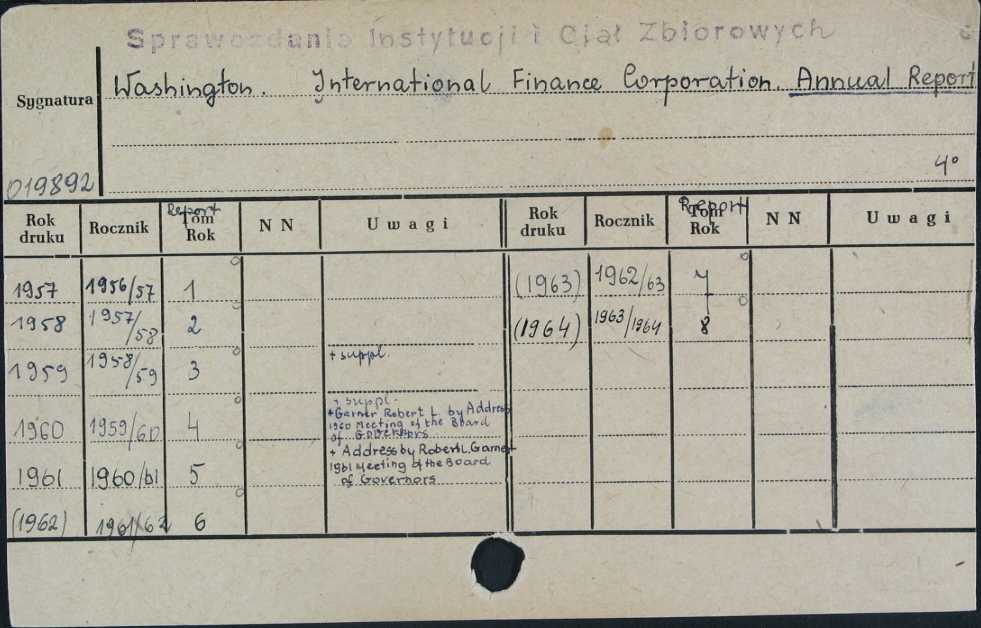 Sprawozdania Instytucji i Ciał Zbiorowych
Washington. International Finance Corporation. Annual Report
Sygnatura
4°
019892
Rok druku Rocznik Report Tom Rok N N Uwagi Rok druku Rocznik Report Tom Rok N N Uwagi
1957 1956/57 1 (1963) 1962/63 7
1958 1957/58 2 (1964) 1963/1964 8
1959 1958/59 3 + suppl.
1960 1959/60 4 + suppl.
+ Garner Robert L. by Address
1960 Meeting of the Board
of Governors
1961 1960/61 5 + Address by Robert L. Garner
1961 Meeting of the Board
of Governors
(1962) 1961/62 6